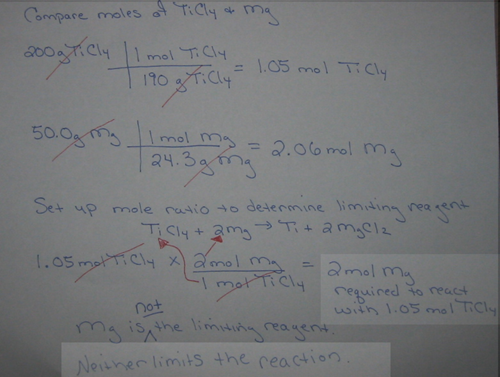 Compare moles of TiCl4 & Mg
200g TiCl4 | 1 mol TiCl4 / 190 g TiCl4 = 1.05 mol TiCl4
50.0g Mg | 1 mol Mg / 24.3 g Mg = 2.06 mol Mg
Set up mole ratio to determine limiting reagent
TiCl4 + 2Mg → Ti + 2MgCl2
1.05 mol TiCl4 x 2 mol Mg / 1 mol TiCl4 = 2 mol Mg
required to react
with 1.05 mol TiCl4
not
Mg is ^ the limiting reagent.
Neither limits the reaction.